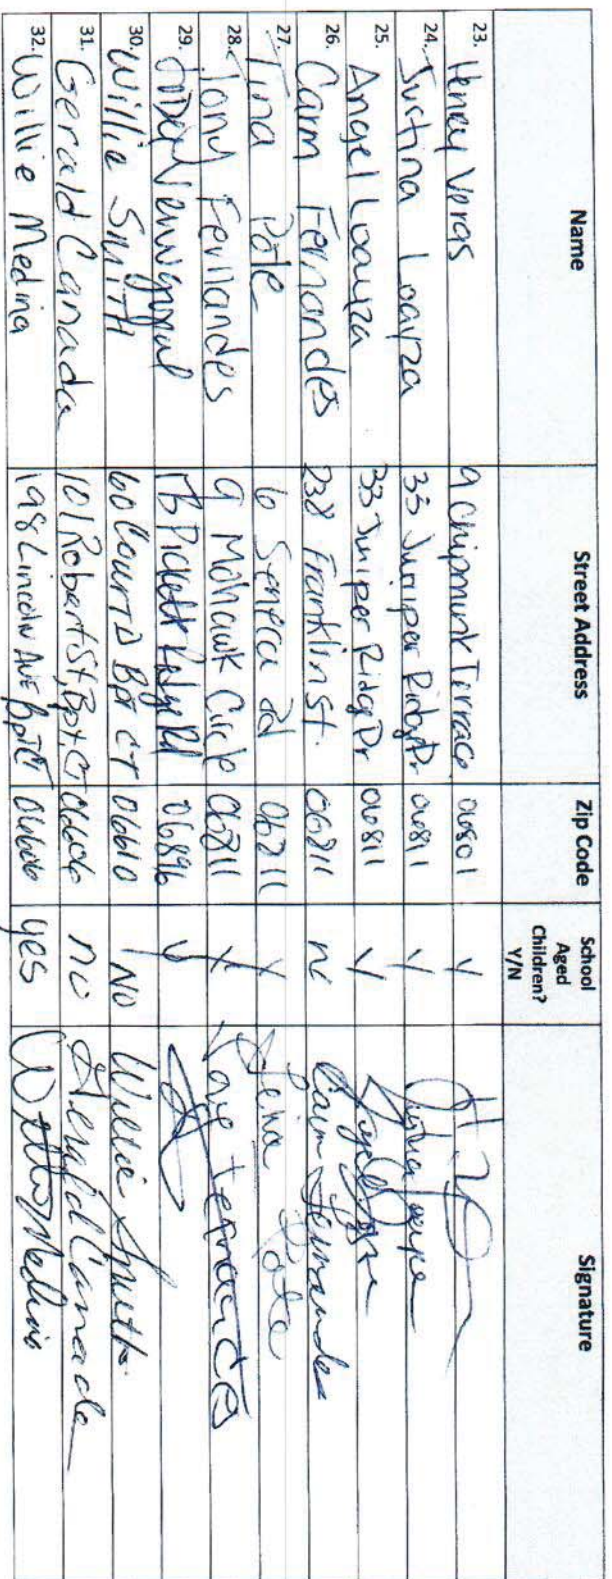 Name Street Address Zip Code School Aged Children? Y/N Signature
23. Henry Veras 9 Chipmunk Terrace 06801 Y
24. Justina Loayza 33 Juniper Ridge Dr 06811 Y Justina Loayza
25. Angel Loayza 33 Juniper Ridge Dr 06811 Y Angel Loayza
26. Carm Fernandes 238 Franklin St. 06811 no Carm Fernandes
27. Tina Pote 6 Seneca Rd 06811 Y Tina Pote
28. Tony Fernandes 9 Mohawk Circle 06811 Y Tony Fernandes
29. Rd 06896 Y
30. Willie Smith 60 Court D Bpt CT 06610 NO Willie Smith
31. Gerald Canada 101 Robert St, Bpt, CT 06606 no Gerald Canada
32. Willie Medina 198 Lincoln Ave Bpt CT 06606 yes Willie Medina